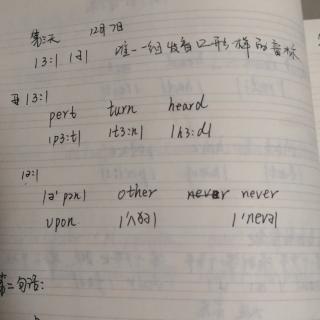 第六天 12月7日
|3:| |ə| 唯一一组发音口形一样的音标
|3:|
pert turn heard
|p3:t| |t3:n| |h3:d|
|ə:|
|ə'pən| other never never
upon |'ʌðə| |'nevə|
第二句话: